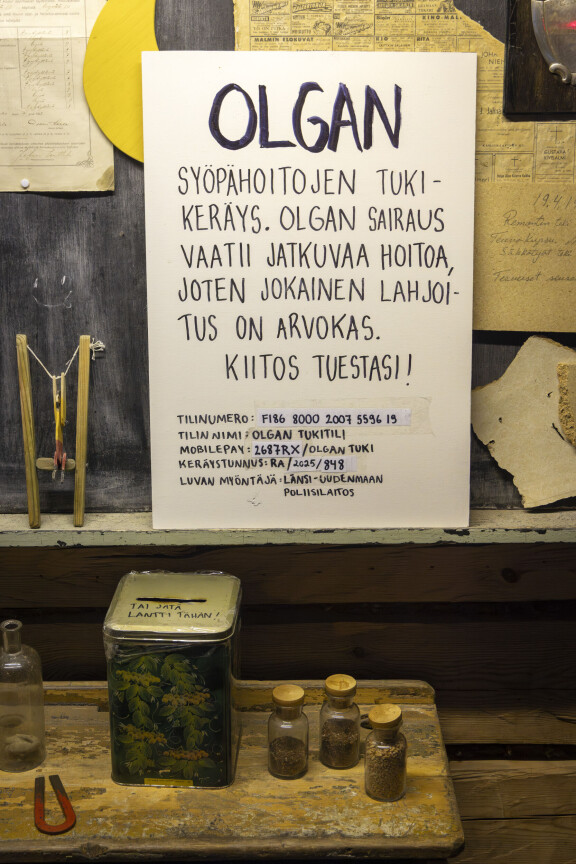 MALMIN ELOKUVAT
KINO-MAL
OLGAN
SYÖPÄHOITOJEN TUKI-
KERÄYS. OLGAN SAIRAUS
VAATII JATKUVAA HOITOA,
JOTEN JOKAINEN LAHJOI-
TUS ON ARVOKAS.
KIITOS TUESTASI!
TILINUMERO: FI86 8000 2007 5596 19
TILIN NIMI: OLGAN TUKITILI
MOBILEPAY: 2687RX/OLGAN TUKI
KERÄYSTUNNUS: RA/2025/848
LUVAN MYÖNTÄJÄ: LÄNSI-UUDENMAAN
POLIISILAITOS
TAI JÄTÄ
LANTTI TÄHÄN!